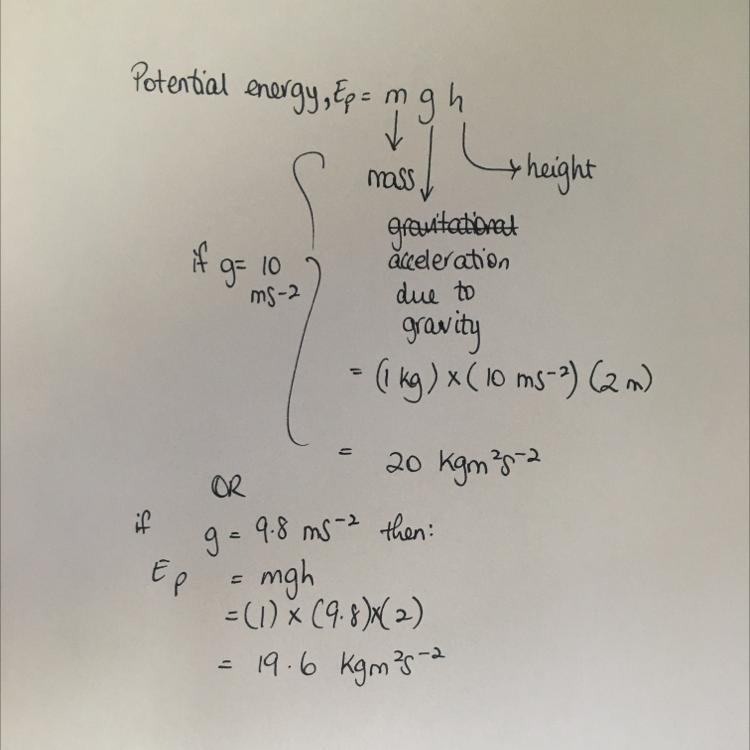 Potential energy, Ep = m g h
mass
height
gravitational
acceleration
due to
gravity
if g= 10
ms-2
= (1 kg) x (10 ms-²) (2 m)
= 20 Kgm²s-²
OR
if g = 9.8 ms-² then:
Ep = mgh
= (1) x (9.8)x(2)
= 19.6 Kgm²s-²